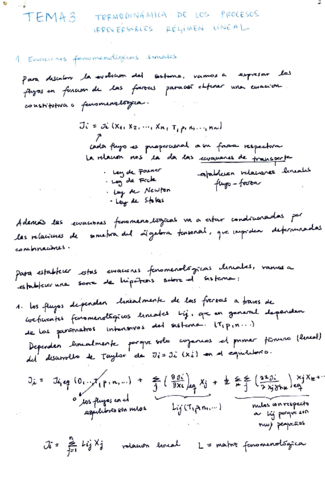 2
TEMA 3 TERMODINÁMICA DE LOS PROCESOS
IRREVERSIBLES RÉGIMEN LINEAL
1. Ecuaciones fenomenológicas lineales
Para describir la evolución del sistema, vamos a expresar los
flujos en función de las fuerzas para así obtener una ecuación
constitutiva o fenomenológica.
Ji = Ji (X1, X2, ..., Xn, T, p, n1, ..., nn)
cada flujo es proporcional a su fuerza respectiva
La relación nos la da las ecuaciones de transporte
· Ley de Fourier
· Ley de Fick
· Ley de Newton
· Ley de Stokes
establecen relaciones lineales
flujo-fuerza
Además las ecuaciones fenomenológicas va a estar condicionadas por
las relaciones de simetría del álgebra tensorial, que impiden determinadas
combinaciones.
Para establecer estas ecuaciones fenomenológicas lineales, vamos a
establecer una serie de hipótesis sobre el sistema:
1. los flujos dependen linealmente de las fuerzas a través de
coeficientes fenomenológicos lineales Lij, que en general dependen
de los parámetros intensivos del sistema. (T, p, n...)
Dependen linealmente porque solo cogemos el primer término (lineal)
del desarrollo de Taylor de Ji = Ji (Xi) en el equilibrio.
Ji = Ji,eq (0,..,T, p, n, ...) + Σj (∂Ji/∂Xj)eq Xj + 1/2 Σ Σ (∂²Ji/∂Xj∂Xk)eq XjXk + ...
0 los flujos en el
equilibrio son nulos
Lij (T, p, n, ...)
nulos con respecto
a Lij porque son
muy pequeños
Ji = Σ Lij Xj relación lineal L = matriz fenomenológica